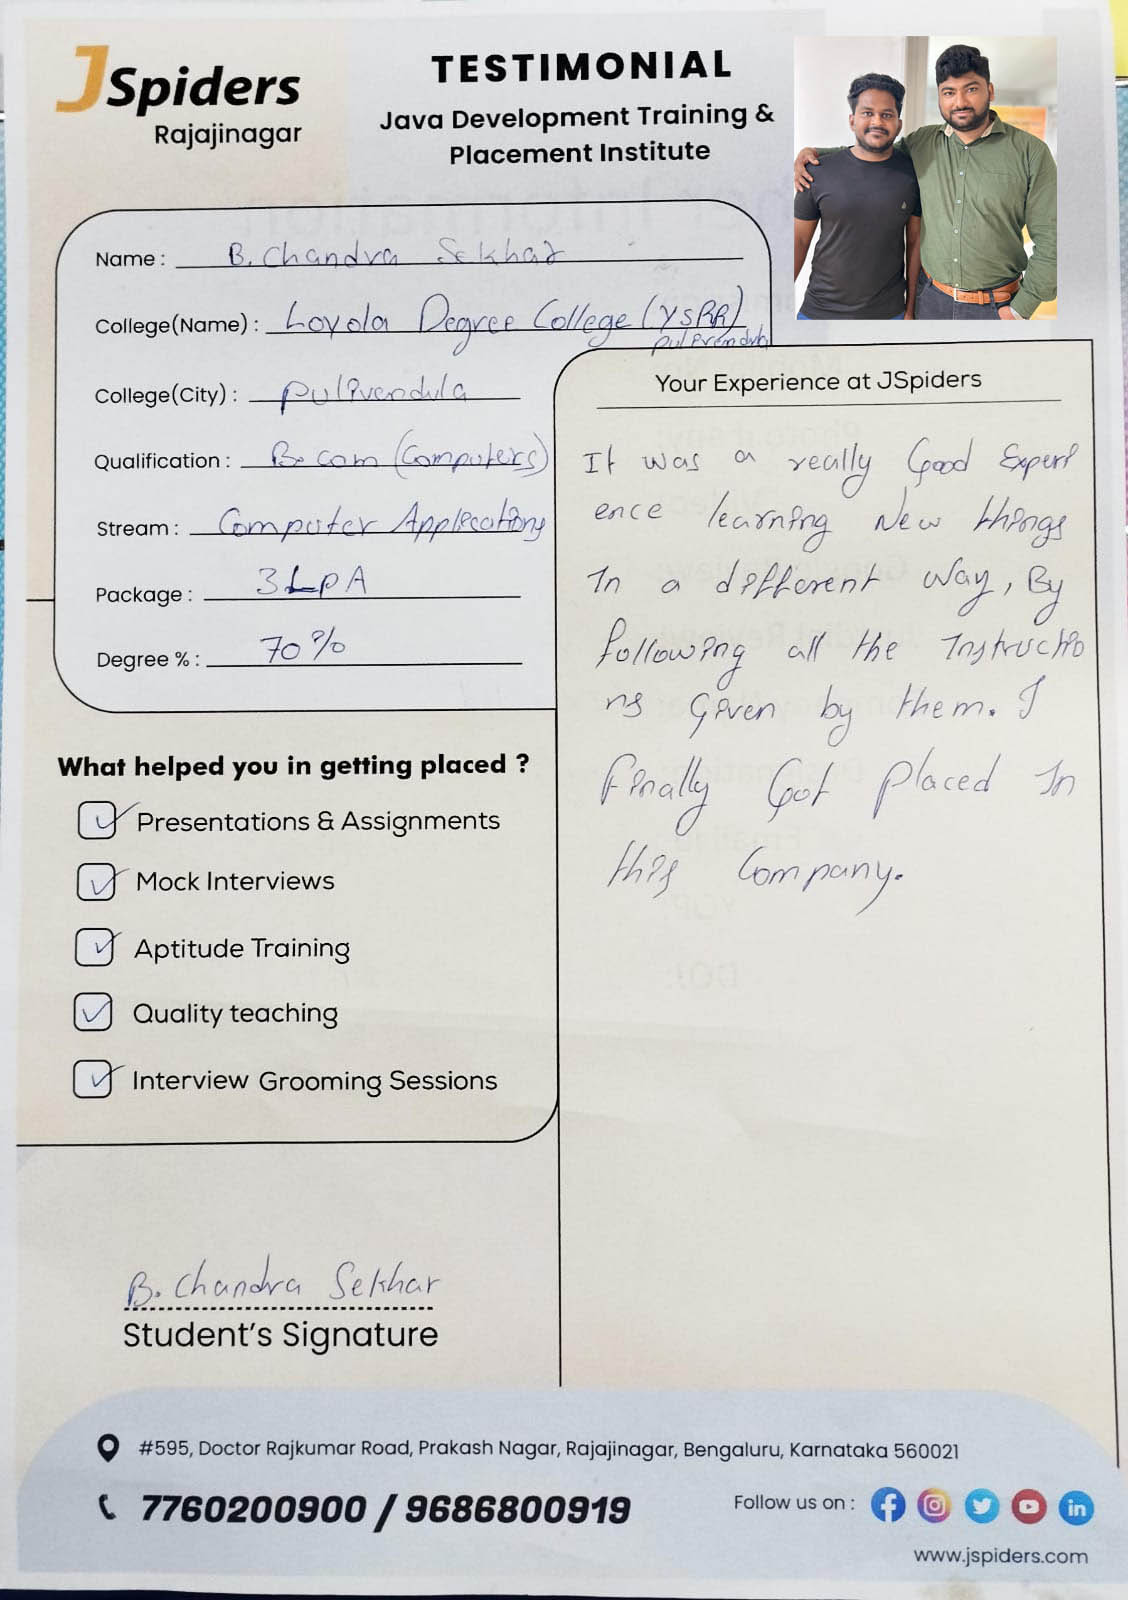 JSpiders
Rajajinagar
TESTIMONIAL
Java Development Training &
Placement Institute
Name : B. Chandra Sekhar
College(Name) : Loyola Degree College (YSRR)
pulivendula
College(City) : pulivendula
Qualification : B.com (Computers)
Stream : Computer Applications
Package : 3 LPA
Degree % : 70%
What helped you in getting placed ?
Presentations & Assignments
Mock Interviews
Aptitude Training
Quality teaching
Interview Grooming Sessions
Your Experience at JSpiders
It was a really Good Experi
ence learning New things
In a different way, By
following all the Instructio
ns Given by them. I
Finally Got placed In
this Company.
B. Chandra Sekhar
Student's Signature
#595, Doctor Rajkumar Road, Prakash Nagar, Rajajinagar, Bengaluru, Karnataka 560021
7760200900 / 9686800919
Follow us on :
www.jspiders.com